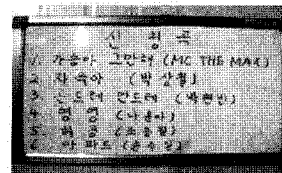 신 청 곡
1. 가슴아 그만해 (MC THE MAX)
2. 자옥아 (박상철)
3. 곤드레 만드레 (박현빈)
4. 영영 (나훈아)
5. 허공 (조용필)
6. 아파트 (윤수일)